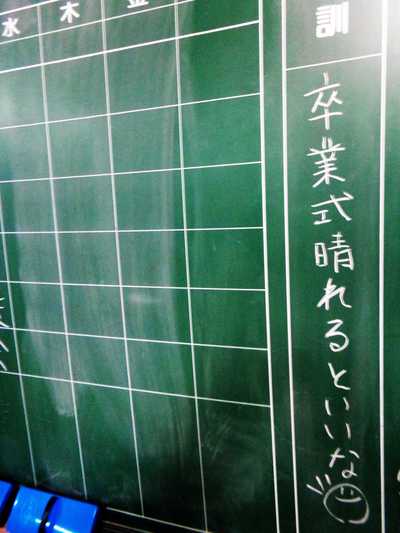 水 木 金
訓
卒業式晴れるといいな